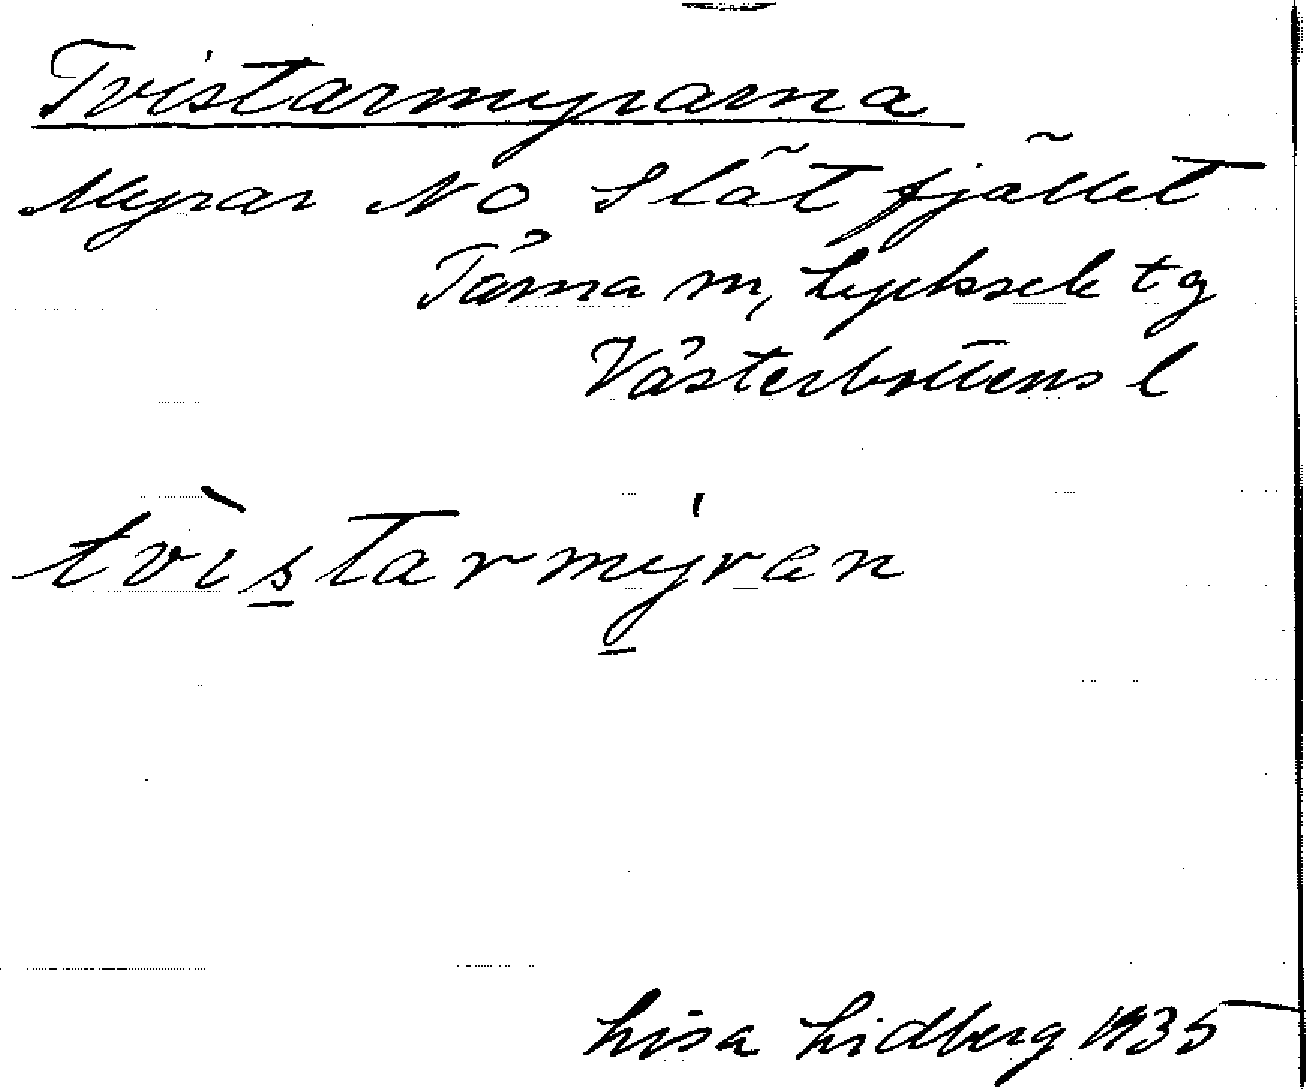 Tvistarmyrarna
Myrar NO Slätfjället
Tärna sn, Lycksele tg
Västerbottens l
tvìstarmýran
Lisa Lidberg 1935